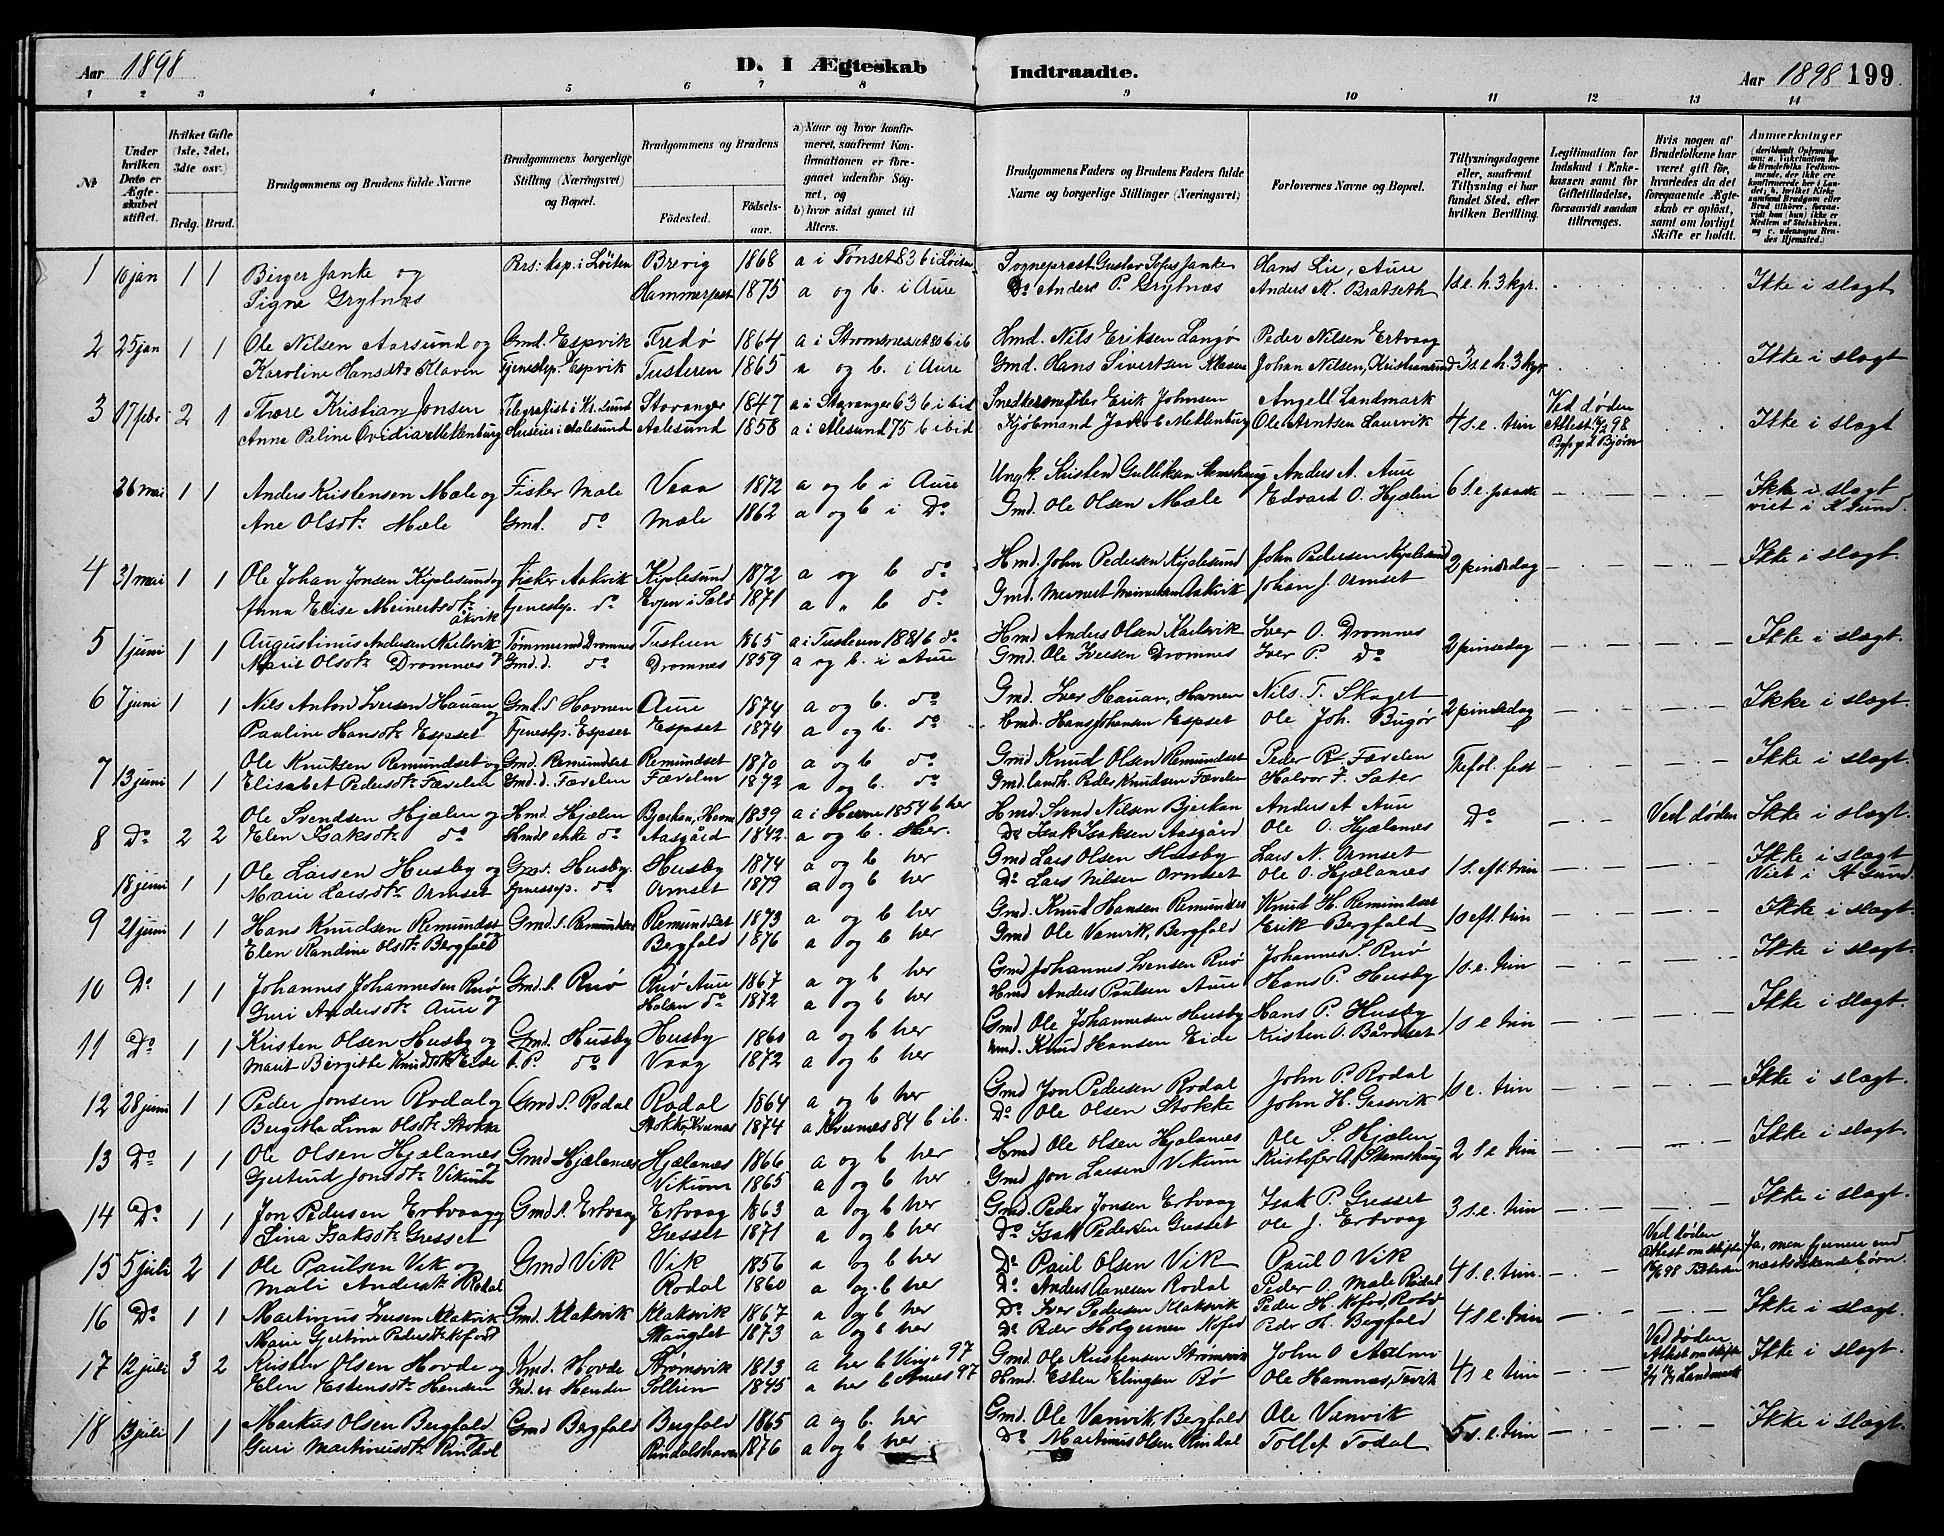 Aar 1898
D. I Ægteskab Indtraadte.
Aar 1898 199
1 2 3 4 5 6 7 8 9 10 11 12 13 14
№
Under hvilken Dato er Ægteskabet stiftet.
Hvilket Gifte (1ste, 2det, 3die osv.)
Brdg. Brud.
Brudgommens og Brudens fulde Navne
Brudgommens borgerlige Stilling (Næringsvei) og Bopæl.
Brudgommens og Brudens
Fødested. Fødselsaar.
a) Naar og hvor konfirmeret, saafremt Konfirmationen er foregaaet udenfor Sognet, og
b) hvor sidst gaaet til Alters.
Brudgommens Faders og Brudens Faders fulde Navne og borgerlige Stillinger (Næringsvei)
Forlovernes Navne og Bopæl.
Tillysningsdagene eller, saafremt Tillysning ei har fundet Sted, efter hvilken Bevilling.
Legitimation for Indskud i Enkekassen samt for Giftetilladelse, forsaavidt saadan tiltrænges.
Hvis nogen af Brudefolkene har været gift før, hvorledes da det foregaaende Ægteskab er opløst, samt om lovligt Skifte er holdt.
Anmærkninger
1 10 jan 1 1 Birger Janke og Brevig 1868 a i Tønset 83 b i Løiten Sogneprast Gustav Sofus Janke Hans Lie, Aure 1 s. e. h. 3 kgr. Ikke i slagt
Signe Grytnæs Hammerfest 1875 a og b. i Aure Do Anders P. Grytnæs Anders M. Bratseth
2 25 jan 1 1 Ole Nilsen Aarsund og Gmd. Espvik Fredø 1864 a i Hmd. Nils Eriksen Langø Peder Nilsen Ertvaag
Karoline Hansdtr Klaven Tjenestep. Espvik Tusteren 1865 a og b. i Aure Gmd. Hans Sivertsen Klaven Johan Nilsen, Kristiansund 3 s. e. h. 3 kgr Ikke i slagt
3 17 febr 2 1 Thore Kristian Jonsen Telegrafist i Kr. Sund Stavanger 1847 a i Stavanger 63 b ibid Snedkermester Erik Johnsen Angell Landmark 4 s. e. trin Ved døden Ikke i slagt
Anna Peline Ovidia Meklenburg Aalesund 1858 a i Alesund 75 b ibid Kjøbmand Jakob Meklenburg Ole Arntsen Laurvik
26 mai 1 1 Anders Kristensen Mæle og Fisker Mæle Vaag 1872 a og b i Aure Ungk. Kristen Gulliksen Anders A. Aure 6 s. e. paaske Ikke i slagt
Ane Olsdtr Mæle Gmd. do Mæle 1862 a og b i Do Gmd. Ole Olsen Mæle Edvard O. Hjælen viet i K Sund
4 31 mai 1 1 Ole Johan Jonsen Kiplesund og Fisker Aakvik Kiplesund 1872 a og b do Hmd. John Pedersen Kiplesund John Pedersen Kiplesund 2 pinsedag Ikke i slagt
Anna Elise Meinertsdtr Åkvik Tjenestep. do 1871 a " b do Gmd. Aakvik Johan J. Ormset
5 1 juni 1 1 Augustinus Andersen Karlsvik Dromnes Tusteren 1865 a i Tusteren 1881 b do Hmd Anders Olsen Karlsvik Iver O. Dromnes 2 pinsedag Ikke i slagt.
Marie Olsdtr Dromnes Gmd. d. do Dromnes 1859 a og b. i Aure Gmd. Ole Iversen Dromnes Iver P. Do
6 7 juni 1 1 Nils Anton Iversen Hauan og Gmd. S Havnen Aure 1874 a og b. do Gmd. Iver Hauan, Havnen Nils. T. Skaget 2 pinsedag Ikke i slagt.
Pauline Hansdtr Espset Tjenestep. Espset Espset 1874 a og b. do Hmd. Hans Johansen Espset Ole Joh. Bugør
7 13 juni 1 1 Ole Knutsen Remundset og Gmd. Remundset Remundset 1870 a og b do Gmd Knud Olsen Remundset Peder R. Færelen Trefol. fest Ikke i slagt.
Elisabet Pedersdtr Færelen Gmd. d. Færelen Færelen 1872 a og b. do Gmd. landh. Peder Knudsen Færelen Halvor F. Sæter
8 Do 2 2 Ole Svendsen Hjælen og Hmd. Hjælen Bjerkan, Hevne 1839 a i Hevne 1854 b her Hmd. Svend Nilsen Bjerkan Anders A Aure Do Ved døden Ikke i slagt.
Elen Isaksdtr do Hmds enke do Aasgård 1842 a og b. her. Do Isak Isaksen Aasgård Ole O. Hjælanæs
18 juni 1 1 Ole Larsen Husby og Husby. Husby 1874 a og b her Gmd Lars Olsen Husby Lars N. Ormset 1 s. eft. trin Ikke i slagt
Marie Larsdtr Ormset do Ormset 1879 a og b her Do Lars Nilsen Ormset Ole O. Hjælanæs Viet i K Sund.
9 21 juni 1 1 Hans Knudsen Remundset og Gmd. S. Remundset Remundset 1873 a og b her Gmd. Knud Hansen Remundset Knud H. Remundset 1 s eft. trin Ikke i slagt.
Elen Randine Olsdtr Bergfald Bergfald 1876 a og b her Gmd Ole Vanvik, Bergfald Erik Bergfald
10 Do 1 1 Johannes Johannesen Ruø og Gmd. S. Ruø Ruø Aure 1867 a og b her Gmd Johannes Svensen Ruø Johannes S. Ruø 1 s. e. trin Ikke i slagt.
Guri Andersdtr Aure Holsen do 1872 a og b her Hmd Anders Paulsen Aure Hans P. Husby
11 Do 1 1 Kristen Olsen Husby og Gmd. Husby Husby 1860 a og b her Gmd Ole Johannesen Husby Hans P. Husby 1 s e trin Ikke i slagt.
Marit Bergitte Knudsdtr Eide t. P. do Vaag 1872 a og b her Hmd. Knud Hansen Eide Kristen O. Bårdset
12 28 juni 1 1 Peder Jonsen Rodal og Gmd S. Rodal Rodal 1864 a og b her Gmd Jon Pedersen Rodal John P. Rodal 1 s e. trin Ikke i slagt.
Bergitta Lina Olsdtr Stokke Stokke, Kvernes 1874 a Kvernes 84 b ib. Do Ole Olsen Stokke John H. Gresvik
13 Do 1 1 Ole Olsen Hjælanæs og Gmd Hjælanæs Hjælanæs 1866 a og b her Hmd Ole Olsen Hjælanæs Ole S. Hjælen 2 s e trin Ikke i slagt.
Gjertrud Jonsdtr Vikum Vikum 1865 a og b her Gmd Jon Larsen Vikum Kristofer A. Stemshaug
14 Do 1 1 Jon Pedersen Ertvaag Gmd S. Ertvaag Ertvaag 1863 a og b her Gmd Peder Jonsen Ertvaag Isak P. Gresset 3 s. e. trin Ikke i slagt.
Lina Isaksdtr Gresset Gresset 1871 a og b her Do Isak Pedersen Gresset Ole J. Ertvaag
15 5 juli 2 1 Ole Paulsen Vik og Gmd Vik Vik 1856 a og b her Do Paul Olsen Vik Paul O Vik 4 s. e. trin. Ved døden Attest om skifte Ja, men fjernere end
Mali Andersdtr Rodal Rodal 1860 a og b her Do Anders Aanesen Rodal Peder O. Male Rodal næstsøskendebørn.
16 Do 1 1 Martinus Iversen Klaksvik Gmd. Klaksvik Klaksvik 1867 a og b her Do Iver Pedersen Klaksvik Peder H. Kofod, Rodal 4 s e. trin Ikke i slagt.
Marie Gjertine Pedersdtr Kofod 1873 a og b her Do Peder Holgersen Kofod Peder H. Bergfald
17 12 juli 3 2 Kristen Olsen Hovde og Kmd. Hovde Strømsvik 1813 a her b Vinje 97 Gmd. Ole Kristensen Strømsvik John O Aalmo 4 s e trin Ved døden Attest om skifte Ikke i slagt.
Elen Estensdtr Henden Henden Sollien 1845 a her b Aunes 97 Hmd. Esten Elingsen Rø Ole Hamnæs, Tevik Landmark
18 13 juli 1 1 Markus Olsen Bergfald og Gmd Bergfald Bergfald 1865 a og b. her Gmd. Ole Vanvik, Bergfald Ole Vanvik 5 s. e. trin Ikke i slagt.
Guri Martinusdtr Rindal Rindalshaven 1876 a og b her Do Martinus Olsen Rindal Tollef Todal